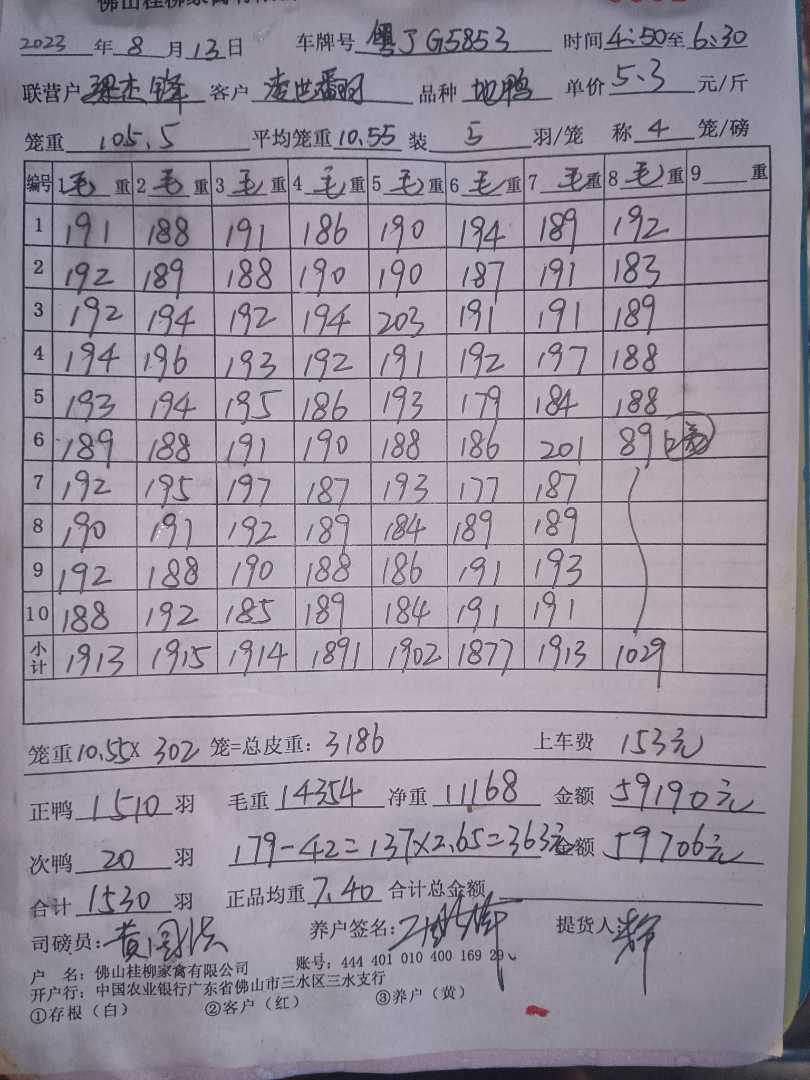 佛山桂柳家禽有限公司
2023年8月13日 车牌号 粤J G5853 时间4:50至6:30
联营户 梁杰锋 客户 品种 地鸭 单价 5.3 元/斤
笼重 105.5 平均笼重 10.55 装 5 羽/笼 称 4 笼/磅
编号 1毛重 2毛重 3毛重 4毛重 5毛重 6毛重 7毛重 8毛重 9重
1 191 188 191 186 190 194 189 192
2 192 189 188 190 190 187 191 183
3 192 194 192 194 203 191 191 189
4 194 196 193 192 191 192 197 188
5 193 194 195 186 193 179 184 188
6 189 188 191 190 188 186 201 89
7 192 195 197 187 193 177 187
8 190 191 192 189 184 189 189
9 192 188 190 188 186 191 193
10 188 192 185 189 184 191 191
小计 1913 1915 1914 1891 1902 1877 1913 1029
笼重10.55X 302 笼=总皮重：3186 上车费 153元
正鸭 1510 羽 毛重 14354 净重 11168 金额 59190元
次鸭 20 羽 179-42=137×2.65=363元 金额 59706元
合计 1530 羽 正品均重 7.40 合计总金额
司磅员： 养户签名： 提货人
户 名：佛山桂柳家禽有限公司 账号：444 401 010 400 169 29
开户行：中国农业银行广东省佛山市三水区三水支行
①存根（白） ②客户（红） ③养户（黄）